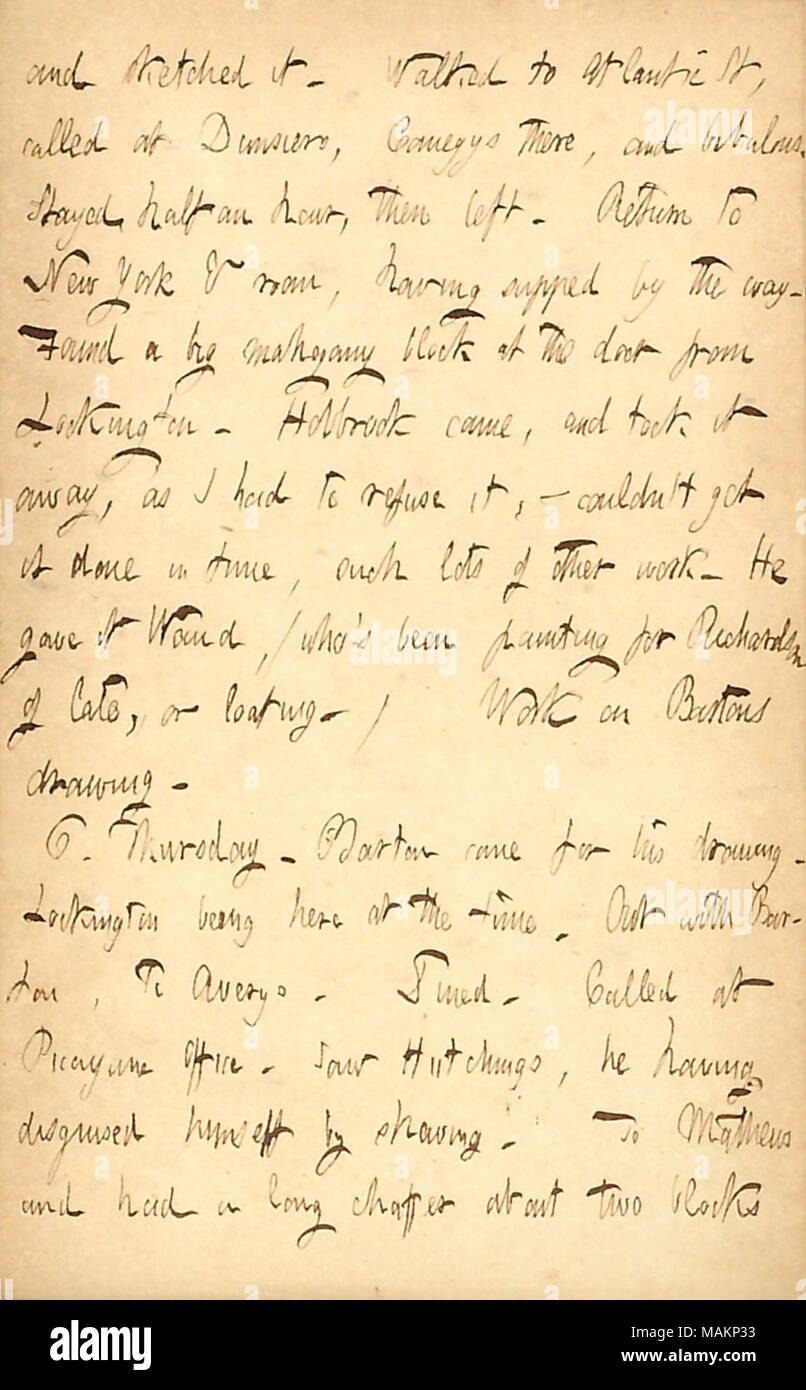 and sketched it – Walked to Atlantic St,
called at Dunsiers, Comegys there, and bibulous.
Stayed half an hour, then left – Return to
New York & room, having supped by the way –
Found a big mahogany block at the door from
Lockington – Holbrook came, and took it
away, as I had to refuse it, – couldn't get
it done in time, such lots of other work – He
gave it Waud, (who's been painting for Richardson
of late, or loafing –) Work on Bartons
drawing –
6. Thursday – Barton came for his drawing –
Lockington being here at the time. Out with Bar-
ton, to Averys – Dined – Called at
Picayune Office – Saw Hutchings, he having
disguised himself by shaving – To Mathews
and had a long chaffer about two blocks
alamy
Image ID: MAKP33
www.alamy.com